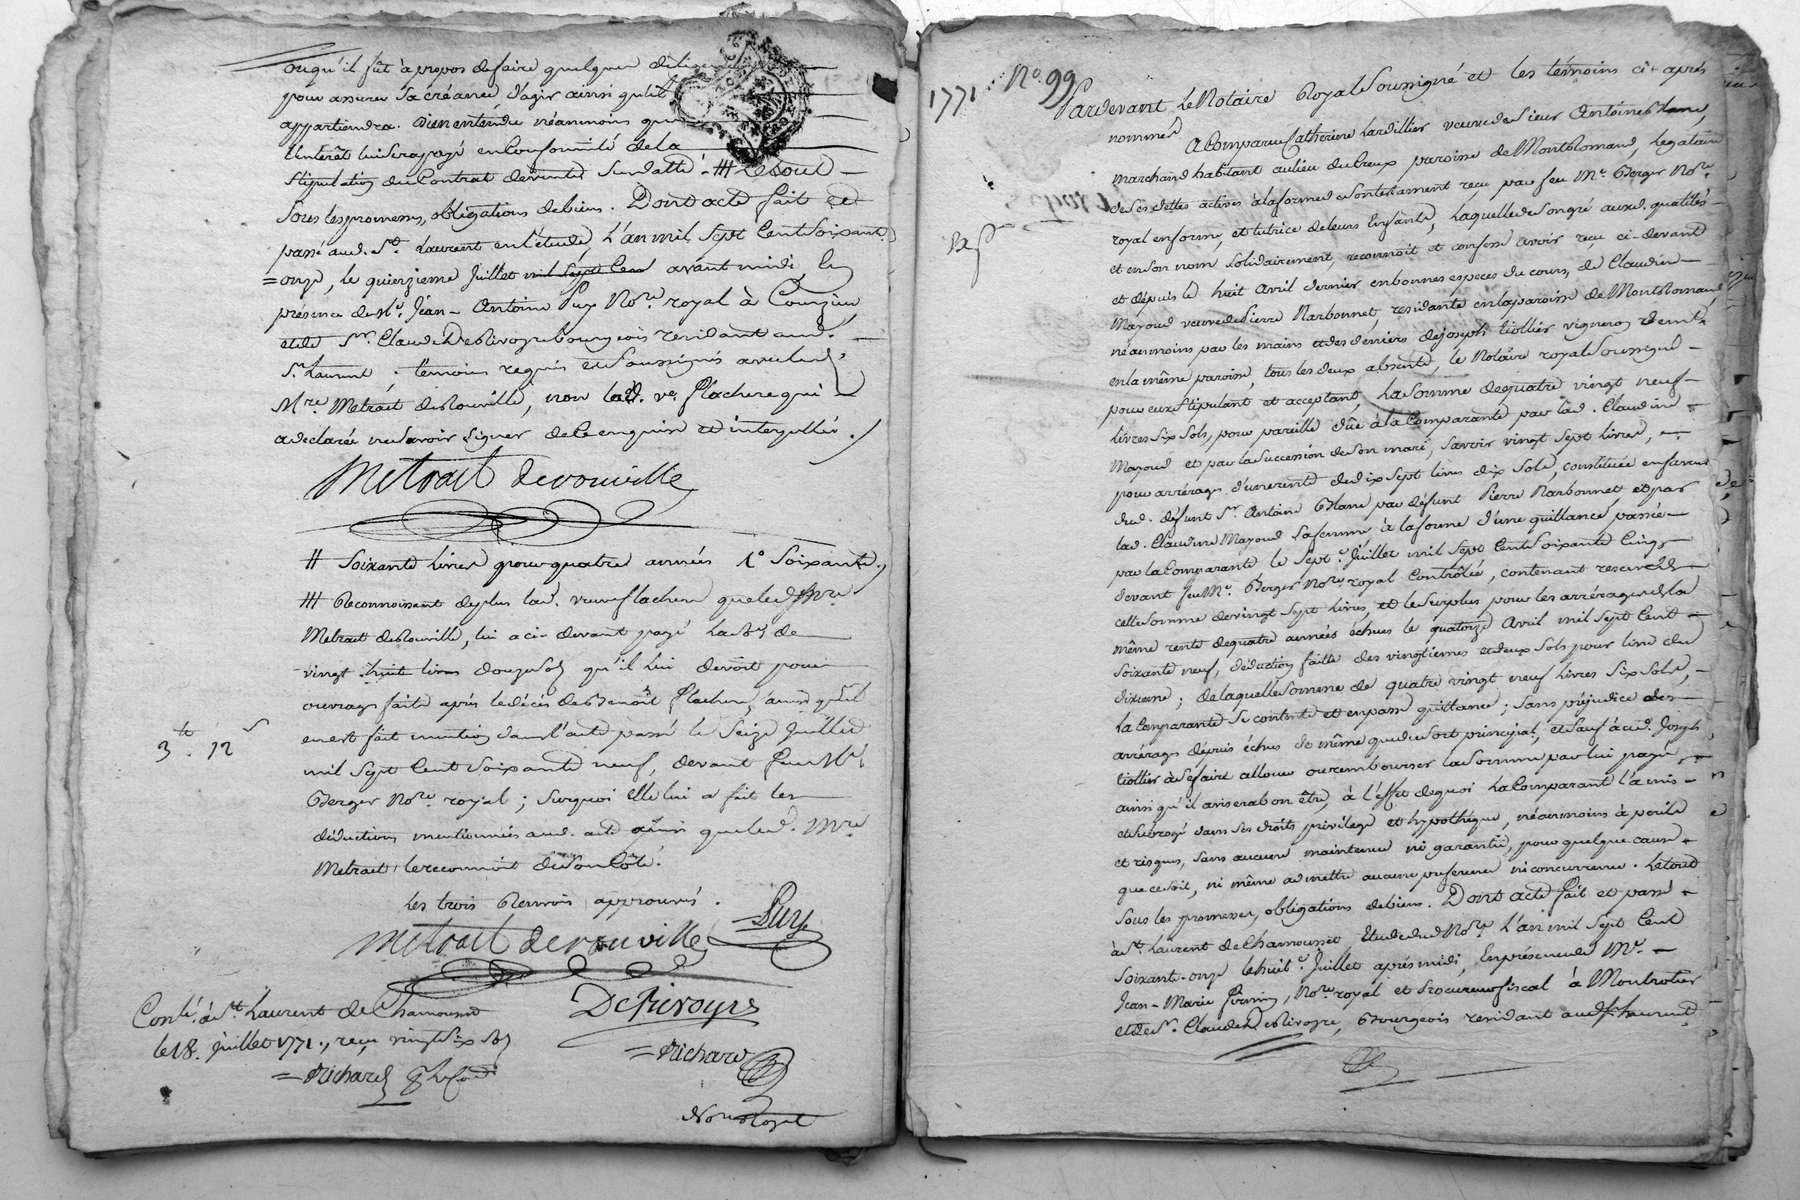 ou qu'il fût à propos de faire quelques
pour assurer sa créance, d'agir ainsi qu'il
appartiendra. Bien entendu néanmoins que
l'intérêt lui sera payé en conformité de la
stipulation du contrat de vente susdatté. /// Le tout
sous les promesses, obligations de biens. Dont acte fait et
passé aud. St. Laurent en l'étude, L'an mil sept cent soixante
=onze, le quinzieme juillet mil sept cent avant midi, En
présence de Me. Jean-Antoine Puy Nore. royal à Courzieu,
et de Sr. Claude DeRivoyre bourgeois residant aud.
St. Laurent. témoins requis et soussignés avec led.
Mre. Metrait deRouville, non lad. ve. Flachere qui
a declaré ne savoir signer de ce enquise et interpellée.
Metrait derouville
// Soixante livres pour quatre années 1° Soixante.
/// Reconnoissant de plus lad. veuve flachere que led. Mre
Metrait deRouville, lui a ci-devant payé la so. de
vingt huit livres douze sols qu'il lui devoit pour
ouvrages faits après le décès de Benoît Flachere, ainsi qu'il
en est fait mention dans l'acte passé le Seize Juillet
mil sept cent soixante neuf, devant feu Me.
Berger Nore. royal; surquoi elle lui a fait les
déductions mentionnées aud. acte ainsi que led. Mre
Metrait le reconnoit de son côté.
3tt. 12s
Les trois Renvois approuvés.
Puy
Metrait derouville
DeRivoyre
Contl. à St. Laurent de Chamousset
le 18. Juillet 1771., reçu vingt six sols
=Richard
=Richard
Nore Royal
1771. No. 99
Pardevant, Le Notaire Royal Soussigné et les témoins ci-après
nommés
A Comparu Catherine Lardillier veuve de sieur Antoine Blanc,
marchand habitant au lieu du Creux paroisse de MontRomand, Legataire
de ses dettes actives à la forme de son testament reçu par feu Me. Berger Nore.
royal en forme, et tutrice de leurs Enfants, Laquelle de son gré auxd. qualités
et en son nom solidairement, reconnoit et confesse avoir reçu ci-devant
et depuis le huit Avril dernier en bonnes especes du cours, de Claudine
Mayoud veuve de Pierre Narbonnet, residante en la paroisse de MontRomand,
néanmoins par les mains et des deniers de Joseph tiollier vigneron residant
en la même paroisse, tous les deux absents, le Notaire royal Soussigné
pour eux stipulant et acceptant, La somme de quatre vingt neuf
livres six sols, pour pareille dûe à la Comparante par lad. Claudine
Mayoud et par la succession de son mari, savoir vingt sept livres,
pour arrérages d'une rente de dix sept livres dix sols, constituée en faveur
dud. défunt Sr. Antoine Blanc par défunt Pierre Narbonnet et par
lad. Claudine Mayoud sa femme à la forme d'une quittance passée
par la Comparante le Sept. Juillet mil sept cent soixante cinq
devant feu Me. Berger Nore royal Contrôlée, contenant reserve de
cette somme de vingt sept livres, et le surplus pour les arrérages de la
même rente de quatre années échues le quatorze Avril mil sept cent
soixante neuf, déduction faite des vingtiemes et deux sols pour livre du
dixieme; de laquelle somme de quatre vingt neuf livres six sols,
la Comparante se contente et en passe quittance; sans préjudice des
arrérages depuis échus de même que du sort principal, et sauf aud. Joseph
tiollier à se faire allouer ou rembourser la somme par lui payée,
ainsi qu'il avisera bon être, à l'effet de quoi la Comparant l'a mis
et subrogé dans ses droits privilege et hypothéque, néanmoins à perils
et risques, sans aucune maintenue ni garantie, pour quelque cause
que ce soit, ni même admettre aucune preference ni concurrence. Le tout
sous les promesses, obligations de biens. Dont acte fait et passé
à St. Laurent de Chamousset, Etude dud. Nore. L'an mil Sept Cent
Soixante-onze le huit. Juillet après midi, En présence de Me.
Jean-Marie, Nore royal et Procureur fiscal à Montrotier
et de Sr. Claude DeRivoyre, Bourgeois residant aud. St Laurent